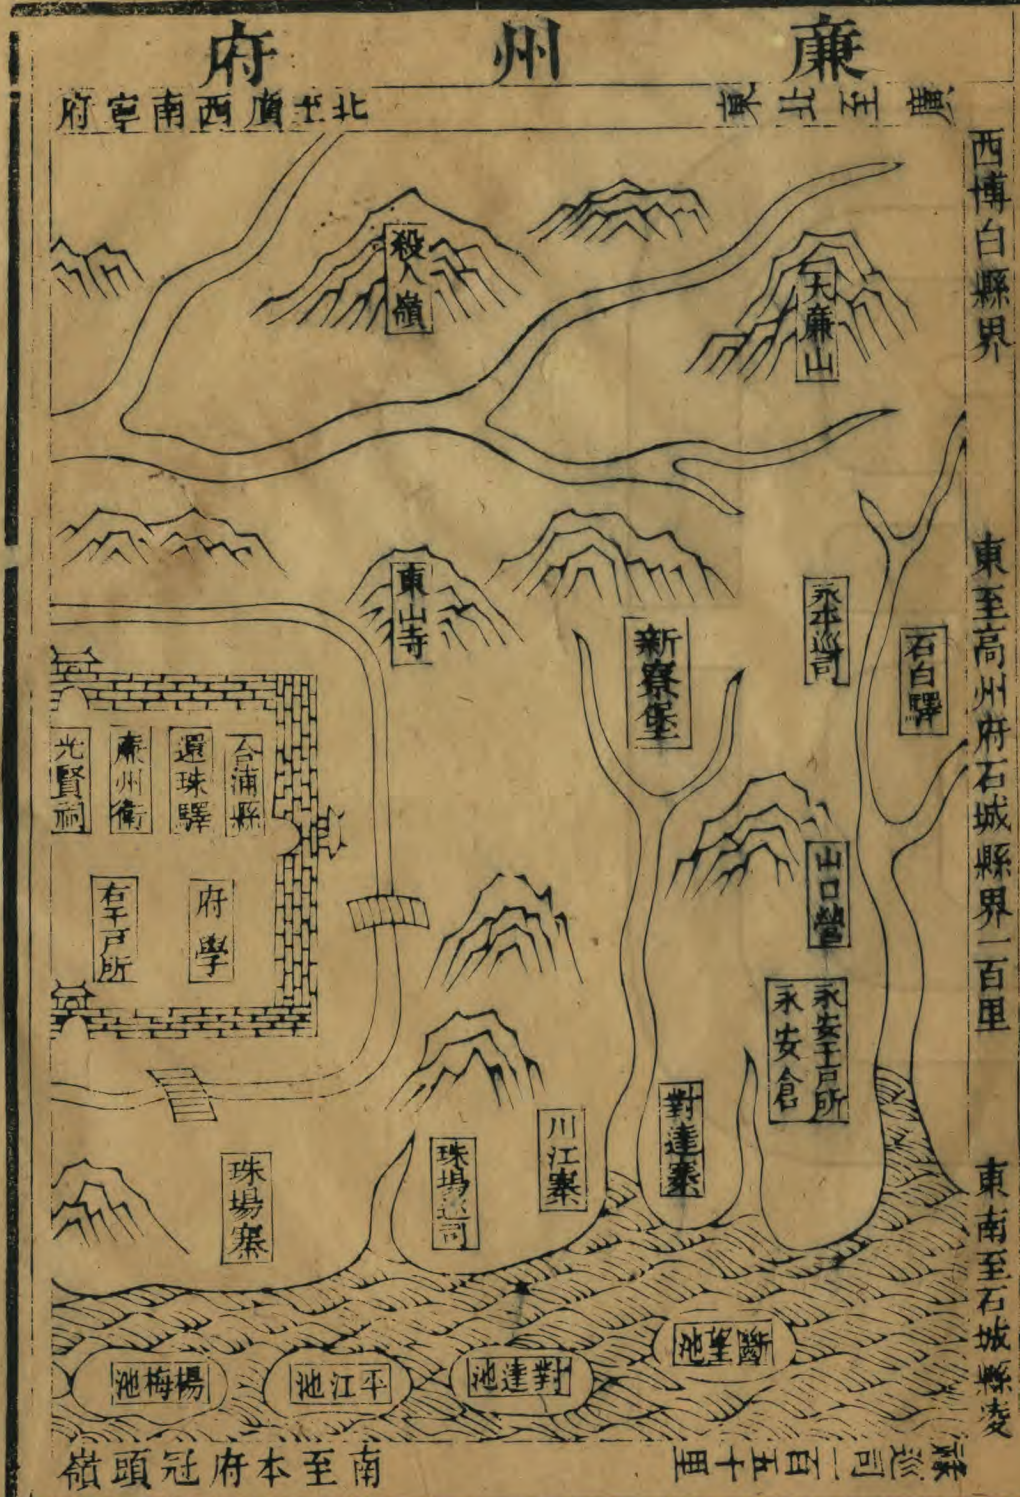 廉州府
東北至廣
西博白縣界
北至廣西南寧府
東至高州府石城縣界一百里
東南至石城縣凌
祿巡司一百五十里
南至本府冠頭嶺
殺人嶺
大廉山
東山寺
新寮堡
永平巡司
石白驛
合浦縣
還珠驛
廉州衛
先賢祠
府學
右千戶所
山口營
永安千戶所
永安倉
對達寨
川江寨
珠場巡司
珠場寨
斷望池
對達池
平江池
楊梅池